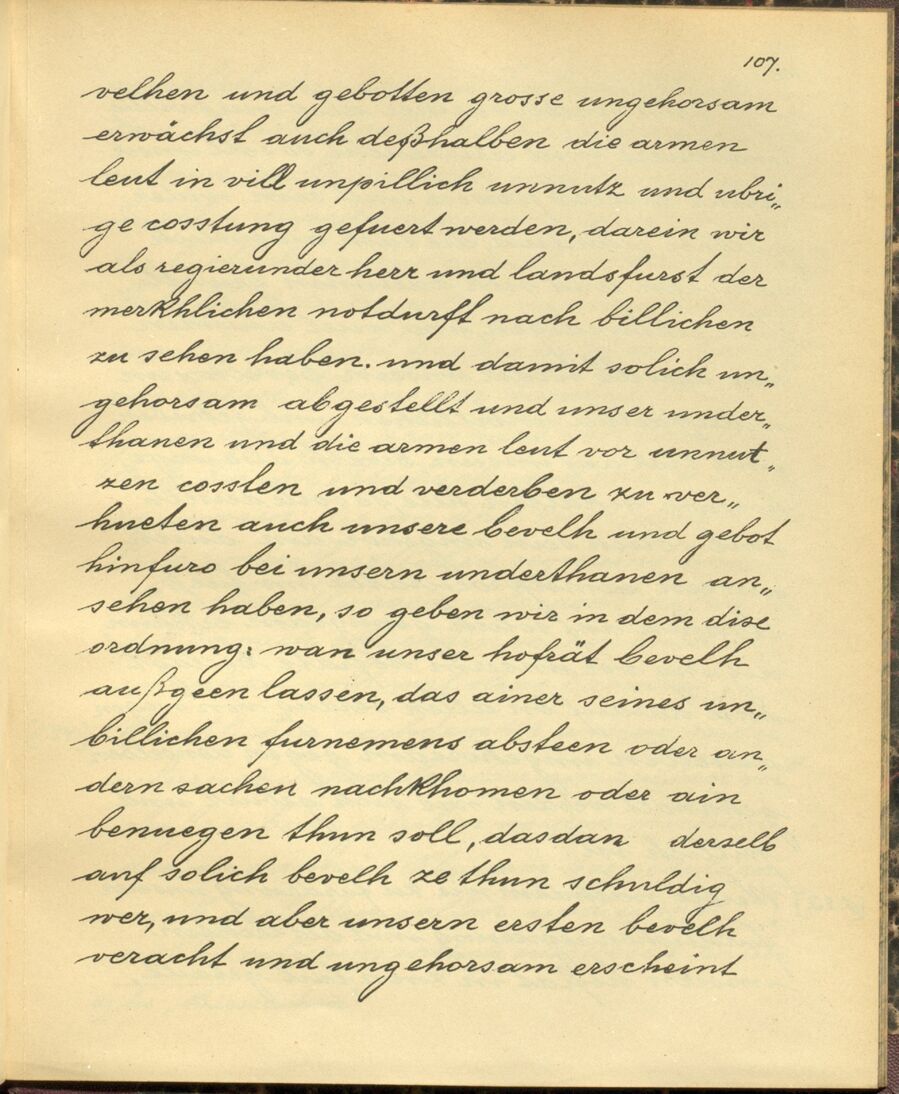 107.
velhen und gebotten grosse ungehorsam
erwächst auch deßhalben die armen
leut in vill unpillich unnutz und ubri„
ge cosstung gefuert werden, darein wir
als regierunder herr und landsfurst der
merkhlichen notdurft nach billichen
zu sehen haben. und damit solich un„
gehorsam abgestellt und unser under„
thanen und die armen leut vor unnut„
zen cossten und verderben zu ver„
hueten auch unsere bevelh und gebot
hinfuro bei unsern underthanen an„
sehen haben, so geben wir in dem dise
ordnung: wan unser hofrät bevelh
außgeen lassen, das ainer seines un„
billichen furnemens absteen oder an„
dern sachen nachkhomen oder ain
benuegen thun soll, dasdan derselb
auf solich bevelh ze thun schuldig
wer, und aber unsern ersten bevelh
veracht und ungehorsam erscheint